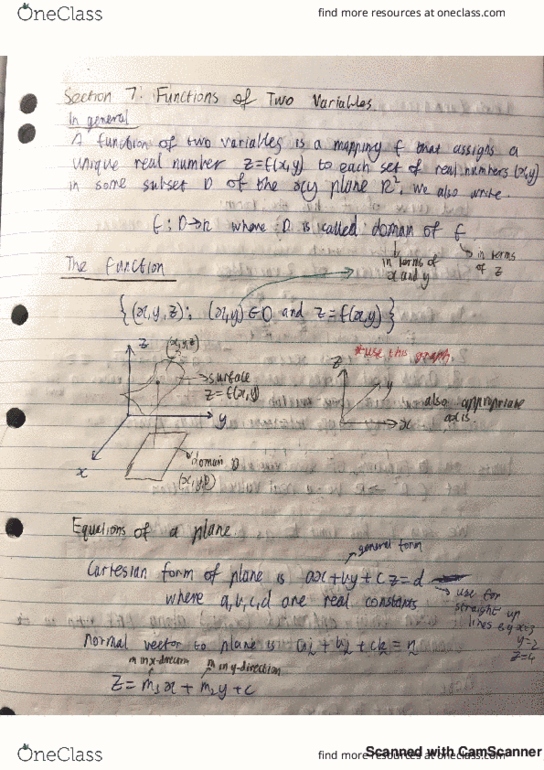 OneClass
find more resources at oneclass.com
Section 7: Functions of Two Variables
In general
A function of two variables is a mapping f that assigns a
unique real number z=f(x,y) to each set of real numbers (x,y)
in some subset D of the xy plane R², we also write
f: D→R where D is called domain of f
in terms of x and y
in terms of z
The function
{(x,y,z): (x,y)∈D and z=f(x,y)}
*use this graph
z
(x,y,z)
surface
z=f(x,y)
y
x
domain D
(x,y,0)
z
y
x
also appropriate
axis
Equations of a plane
general form
Cartesian form of plane is ax+by+cz=d
where a,b,c,d are real constants
use for
straight up
lines e.g x=3
y=2
z=4
Normal vector to plane is ai+bj+ck=n
m in x-direction
m in y-direction
z=m₁x+m₂y+c
OneClass
find more resources at oneclass.com
Scanned with CamScanner